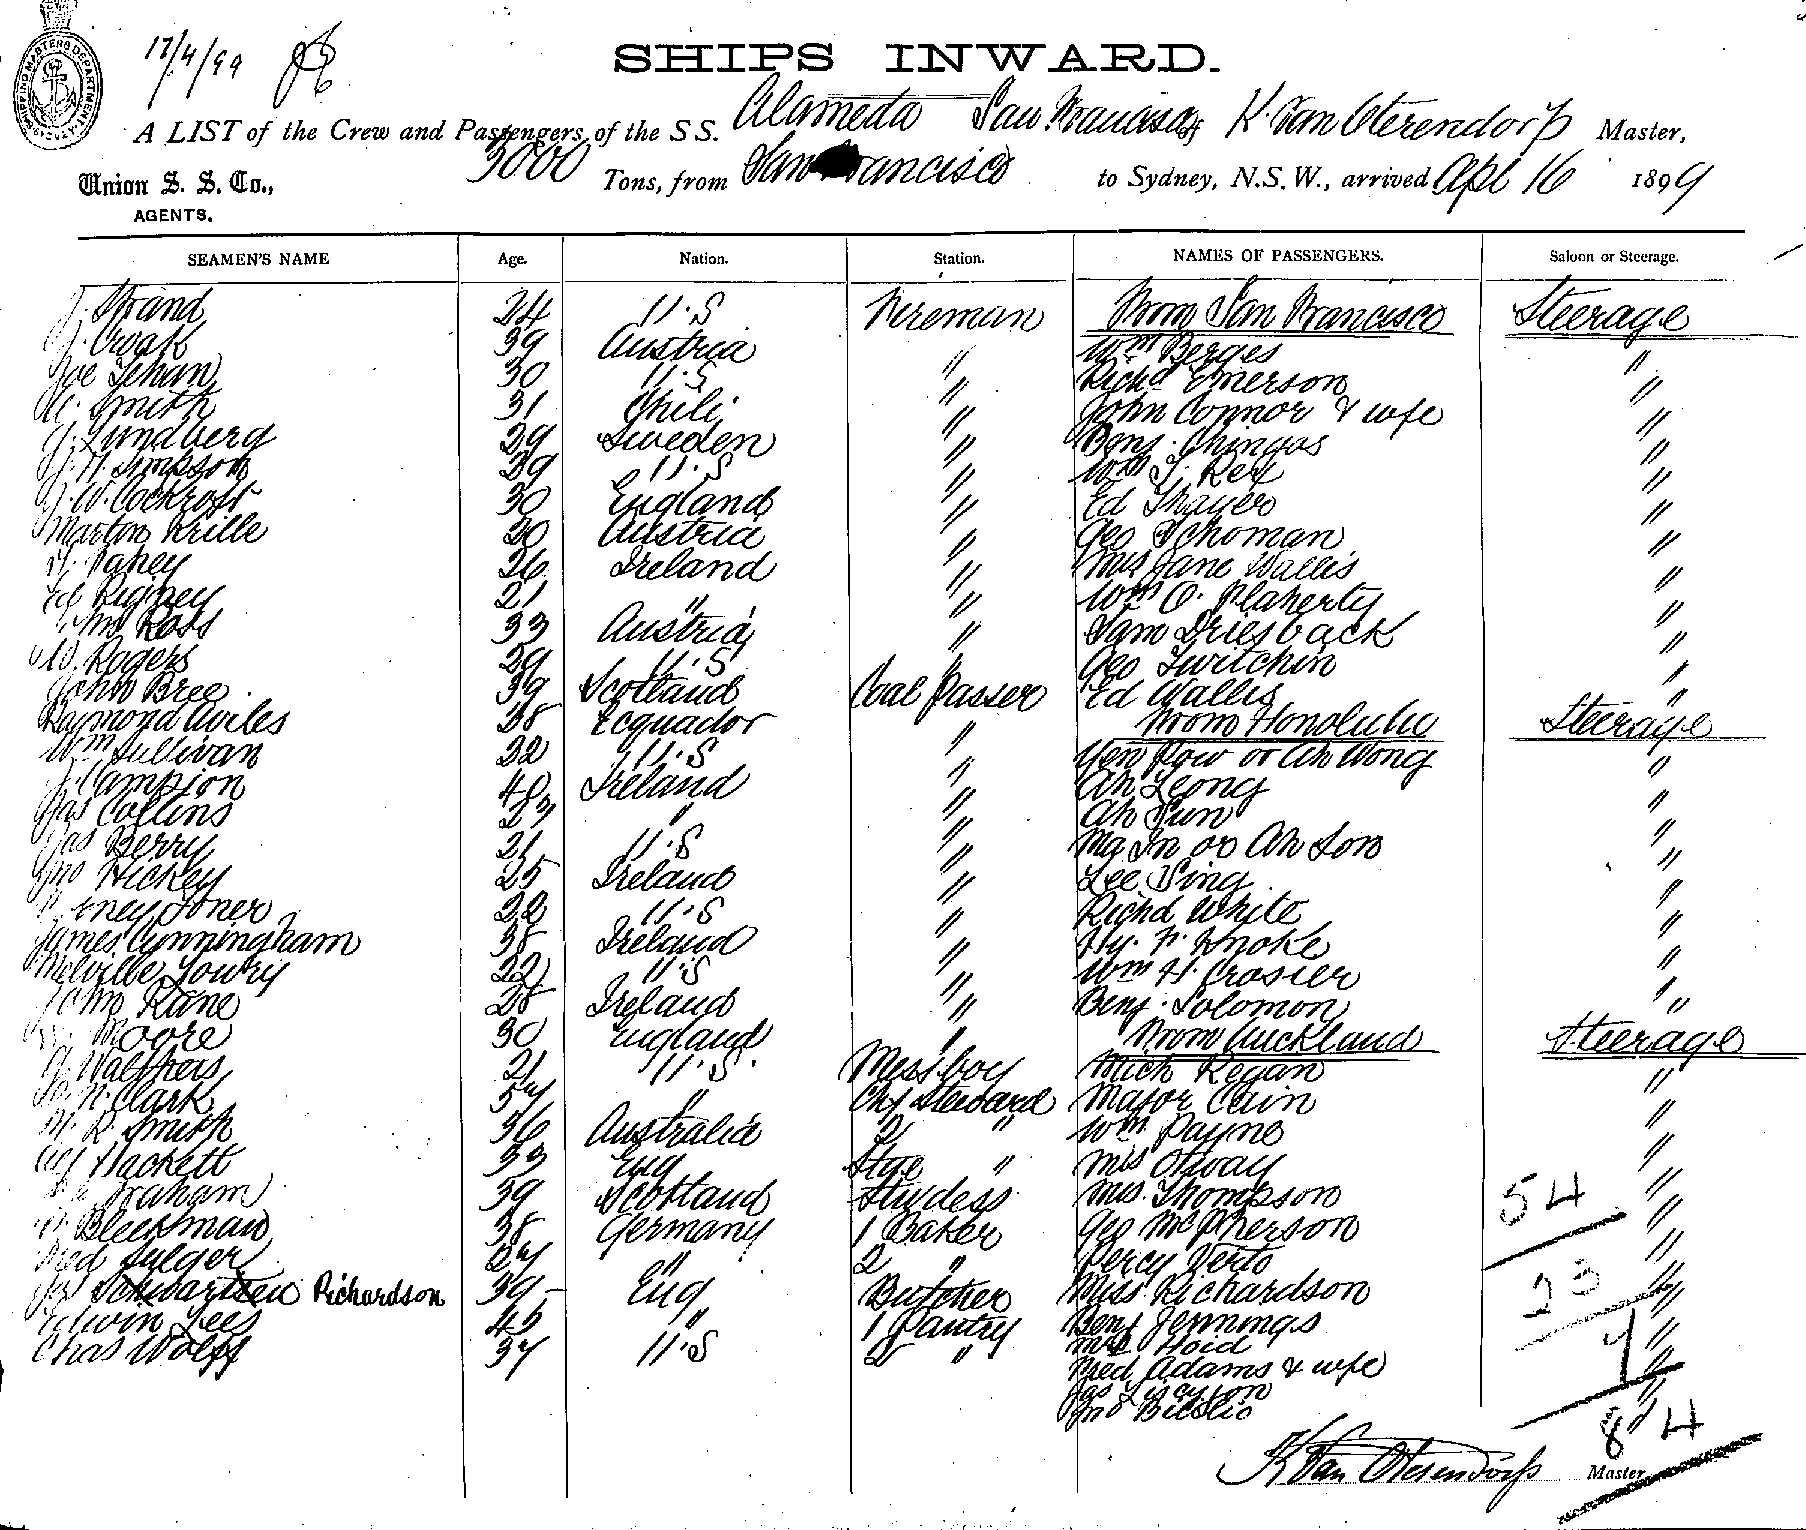 17/4/99
SHIPPING MASTERS DEPARTMENT
SHIPS INWARD.
A LIST of the Crew and Passengers of the SS. Alameda San Francisco of K. Van Oterendorp Master,
Union S. S. Co., 3000 Tons, from San Francisco to Sydney, N.S.W., arrived Apl 16 1899
AGENTS.
SEAMEN'S NAME Age. Nation. Station. NAMES OF PASSENGERS. Saloon or Steerage.
J. Strand 24 U.S Fireman From San Francisco Steerage
J. Croak 39 Austria " Wm Berges "
Joe Lehan 30 U.S " Richd Emerson "
A. Smith 31 Chili " John Connor & wife "
J. Lundberg 29 Sweden " Benj. Chingos "
J. H. Simpson 39 U.S " Wm S. Rex "
J. W. Cockroft 30 England " Ed Thayer "
Marton Krille 30 Austria " Geo Schoman "
Fahey 26 Ireland " Mrs Jane Wallis "
Ed Rigney 21 " " Wm O. Flaherty "
Ross 33 Austria " Sam Driesback "
W. Rogers 29 U.S " Geo Twitchin "
John Bree 39 Scotland Coal Passer Ed Wallis "
Raymond Aviles 28 Ecquador " From Honolulu Steerage
Wm Sullivan 22 U.S " Yen Pow or Ah Wong "
J. Campion 40 Ireland " Ah Leong "
Jas Collins 23 " " Ah Sun "
Jas Berry 21 U.S " Ma In or Ah Son "
Jno Hickey 25 Ireland " Lee Sing "
22 U.S " Richd White "
James Cunningham 38 Ireland " Hy. F. Knoke "
Melville Lowry 22 U.S " Wm H. Crosier "
John Kane 28 Ireland " Benj. Solomon "
Moore 30 England " From Auckland Steerage
Walthers 21 U.S. Messboy Mich Regan "
N. Clark 57 " Chf Steward Major Cain "
M. R. Smith 36 Australia 2 " Wm Payne "
Hackett 33 Eng Stge " Mrs Otway "
Graham 39 Scotland Studess Mrs. Thompson "
Bleekman 38 Germany 1 Baker Geo McPherson "
Fred Sulger 27 " 2 " Percy Verto "
Schwartzen Richardson 39 Eng Butcher Miss Richardson "
Edwin Lees 45 " 1 Pantry Benj Jennings "
Chas Wolff 37 U.S 2 " Hoid "
Fred Adams & wife "
Jas
Jno
54
23
7
84
K Van Oterendorp Master